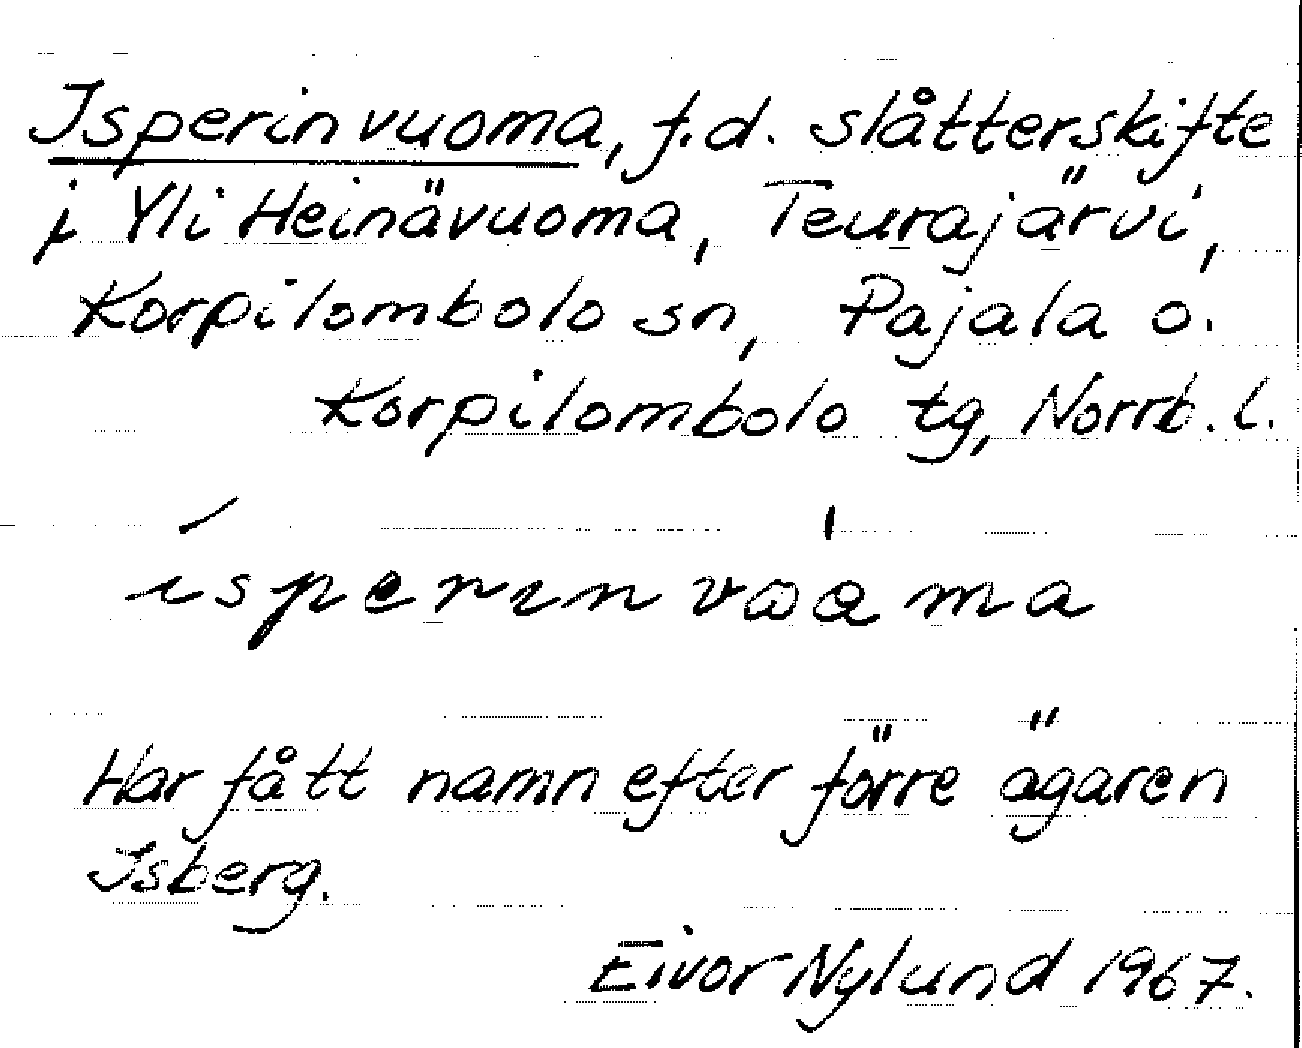 Isperinvuoma, f.d. slåtterskifte
i Yli Heinävuoma, Teurajärvi,
Korpilombolo sn, Pajala o.
Korpilombolo tg, Norrb. l.
Har fått namn efter förre ägaren
Isberg.
Eivor Nylund 1967.